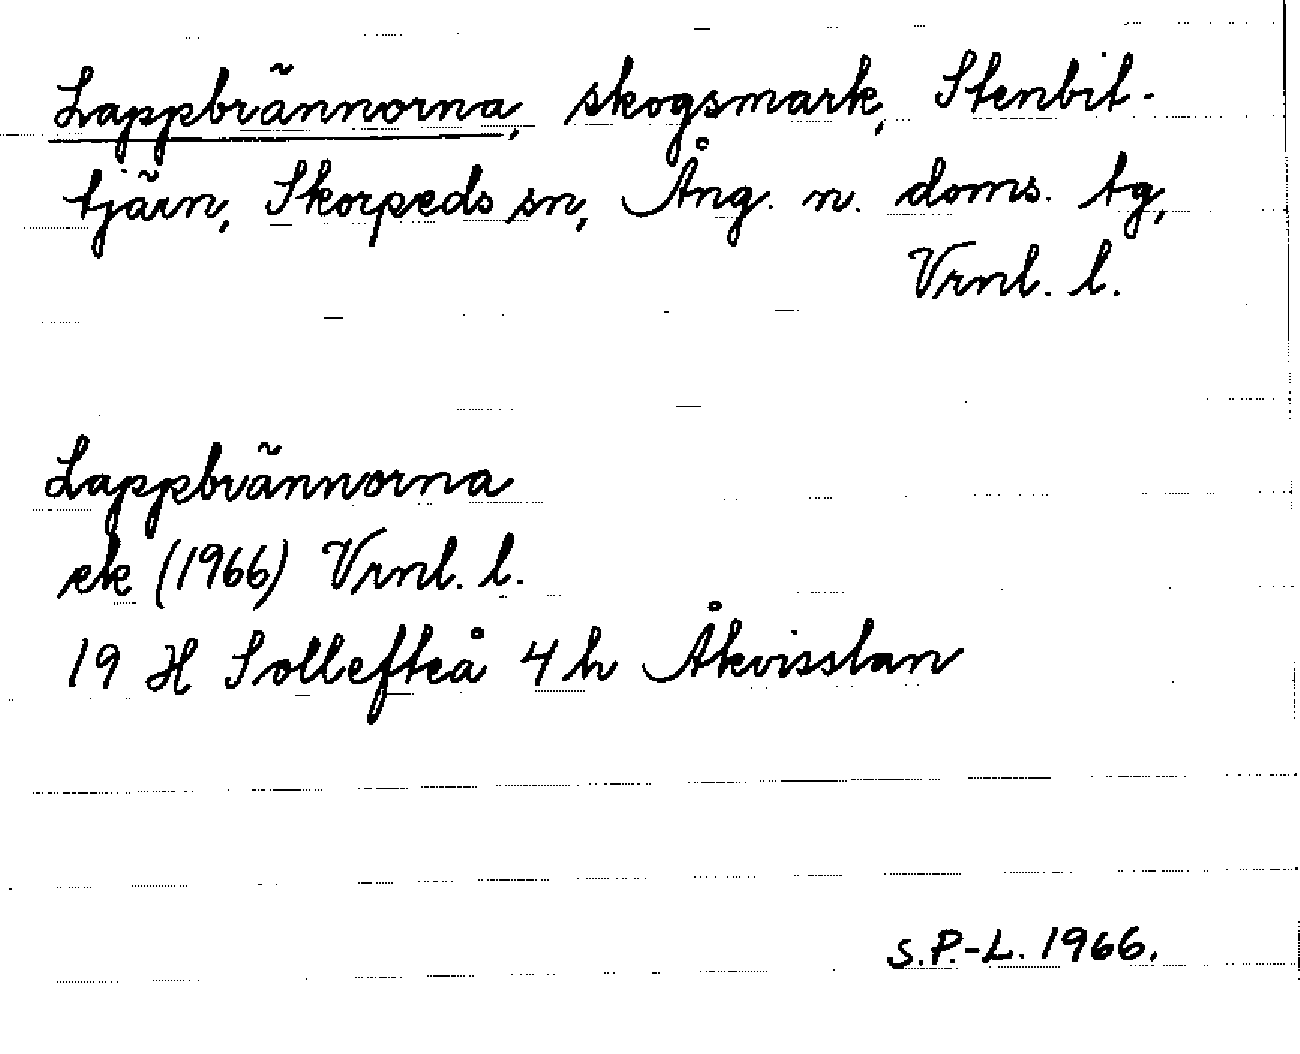 Lappbrännorna, skogsmark, Stenbit-
tjärn, Skorpeds sn, Ång. n. doms. tg,
Vrnl. l.
Lappbrännorna
ek (1966) Vrnl. l.
19 H Sollefteå 4 h Åkvisslan
S.P.-L. 1966.